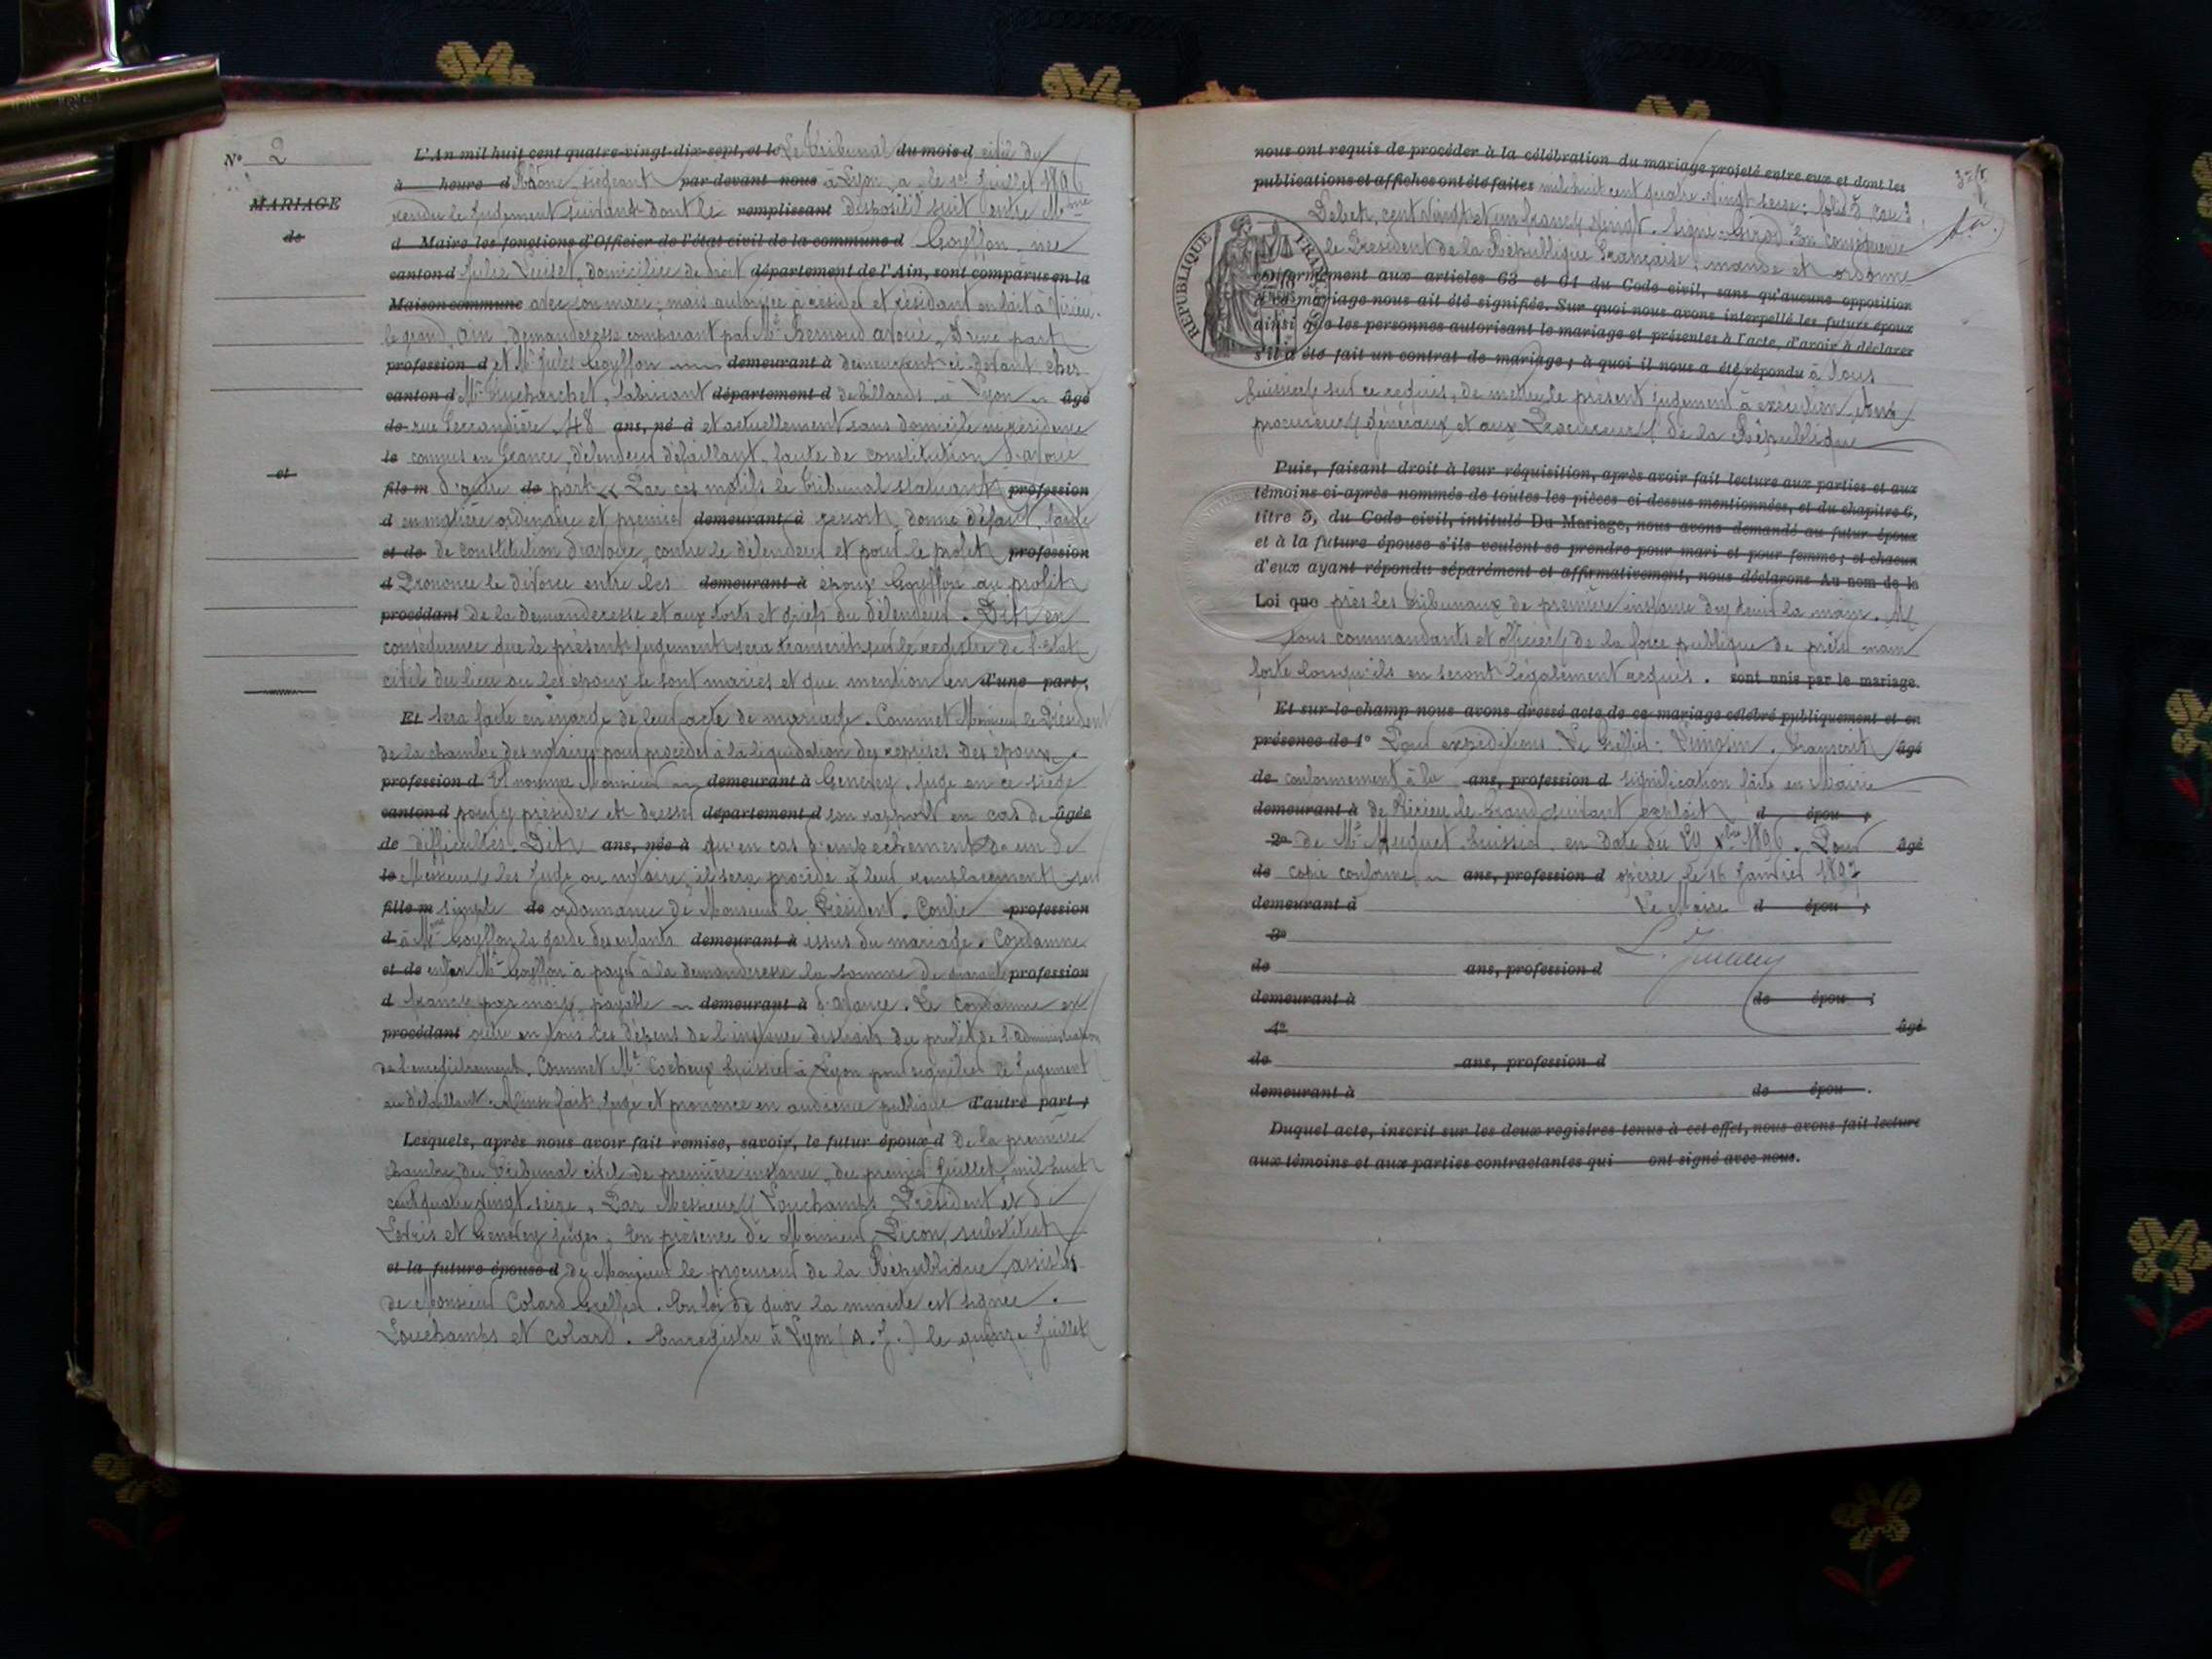 N° 2
MARIAGE
de
et
L'An mil huit cent quatre-vingt-dix-sept, et le Le Tribunal du mois d civil du
à heure d Rhône siégeant par-devant nous à Lyon, a, le 1er Juillet 1896
rendu le Jugement suivant dont le remplissant dispositif suit entre Mme
d Maire les fonctions d'Officier de l'état civil de la commune d Goyffon née
canton d Jules domiciliée de droit département de l'Ain, sont comparus en la
Maison commune avec son mari, mais autorisée à résider et résidant en fait à Virieu
le grand, Ain, demanderesse comparant par Me Bernoud avoué, D'une part
profession d et Mr Jules Goyffon demeurant à demeurant ci-devant chez
canton d Mr fabricant département d de billards, à Lyon âgé
de rue Ferrandière, 48 ans, né à et actuellement sans domicile ni résidence
le connus en France, défendeur défaillant, faute de constitution d'avoué
fils m d'autre de part « Par ces motifs le Tribunal statuant profession
d en matière ordinaire et premier demeurant à ressort, donne défaut, faute
et de de constitution d'avoué, contre le défendeur et pour le profit profession
d Prononce le divorce entre les demeurant à époux Goyffon au profit
procédant de la demanderesse et aux torts et griefs du défendeur. Dit en
conséquence que le présent jugement sera transcrit sur le registre de l'Etat
civil du lieu ou les époux se sont mariés et que mention en d'une part;
Et sera faite en marge de leur acte de mariage. Commet Monsieur le Président
de la chambre des notaires pour procéder à la liquidation des reprises des époux.
profession d Et nomme Monsieur demeurant à Genevey, Juge en ce siège
canton d pour y présider et dresser département d son rapport en cas de âgée
de difficultés. Dit ans, née à qu'en cas d'empêchement de un de
le Messieurs les Juge ou notaire, il sera procédé à leur remplacement sur
fille m simple de ordonnance de Monsieur le Président. Confie profession
d à Mme Goyffon la garde des enfants demeurant à issus du mariage. Condamne
et de enfin Mr Goyffon à payer à la demanderesse la somme de quarante profession
d francs par mois, payable demeurant à d'avance. Le condamne en
procédant outre en tous les dépens de l'instance distraits au profit de l'administration
de l'enregistrement. Commet Me Cocheux huissier à Lyon pour signifier le Jugement
au défaillant. Ainsi fait, Jugé et prononcé en audience publique d'autre part;
Lesquels, après nous avoir fait remise, savoir, le futur époux d De la première
chambre du Tribunal civil de première instance, du premier Juillet mil huit
cent quatre vingt seize. Par Messieurs Louchamps Président et de
et Genevey juges. En présence de Monsieur Picon, substitut
et la future épouse d de Monsieur le procureur de la République, assistés
de Monsieur Colard Greffier. En foi de quoi la minute est signée.
Louchamps et Colard. Enregistré à Lyon (A. J.) le quinze Juillet
nous ont requis de procéder à la célébration du mariage projeté entre eux et dont les
publications et affiches ont été faites mil huit cent quatre vingt seize; folio 5 case 3
Debet, cent vingt et un francs vingt. Signé: Girod. En conséquence
le Président de la République Française, mande et ordonne
RÉPUBLIQUE FRANÇAISE
conformément aux articles 63 et 64 du Code civil, sans qu'aucune opposition
à ce mariage nous ait été signifiée. Sur quoi nous avons interpellé les futurs époux
ainsi que les personnes autorisant le mariage et présentes à l'acte, d'avoir à déclarer
s'il a été fait un contrat de mariage; à quoi il nous a été répondu à tous
huissiers sur ce requis, de mettre le présent jugement à exécution, aux
procureurs Généraux et aux Procureurs de la République
Puis, faisant droit à leur réquisition, après avoir fait lecture aux parties et aux
témoins ci-après nommés de toutes les pièces ci-dessus mentionnées, et du chapitre 6,
titre 5, du Code civil, intitulé Du Mariage, nous avons demandé au futur époux
et à la future épouse s'ils veulent se prendre pour mari et pour femme; et chacun
d'eux ayant répondu séparément et affirmativement, nous déclarons Au nom de la
Loi que près les tribunaux de première instance d'y tenir la main. A
tous commandants et officiers de la force publique de prêter main
forte lorsqu'ils en seront légalement requis. sont unis par le mariage.
Et sur-le-champ nous avons dressé acte de ce mariage célébré publiquement et en
présence de 1° Pour expédition: Le Greffier: Transcrit âgé
de conformément à la ans, profession d signification faite en Mairie
demeurant à de Virieu-le-Grand suivant exploit d épou ;
2° de Me Huguet huissier en date du 29 Xbre 1896. Pour âgé
de copie conforme ans, profession d opérée le 16 Janvier 1897
demeurant à Le Maire d épou ;
3°
de ans, profession d
demeurant à de épou ;
4° âgé
de ans, profession d
demeurant à de épou .
Duquel acte, inscrit sur les deux registres tenus à cet effet, nous avons fait lecture
aux témoins et aux parties contractantes qui ont signé avec nous.